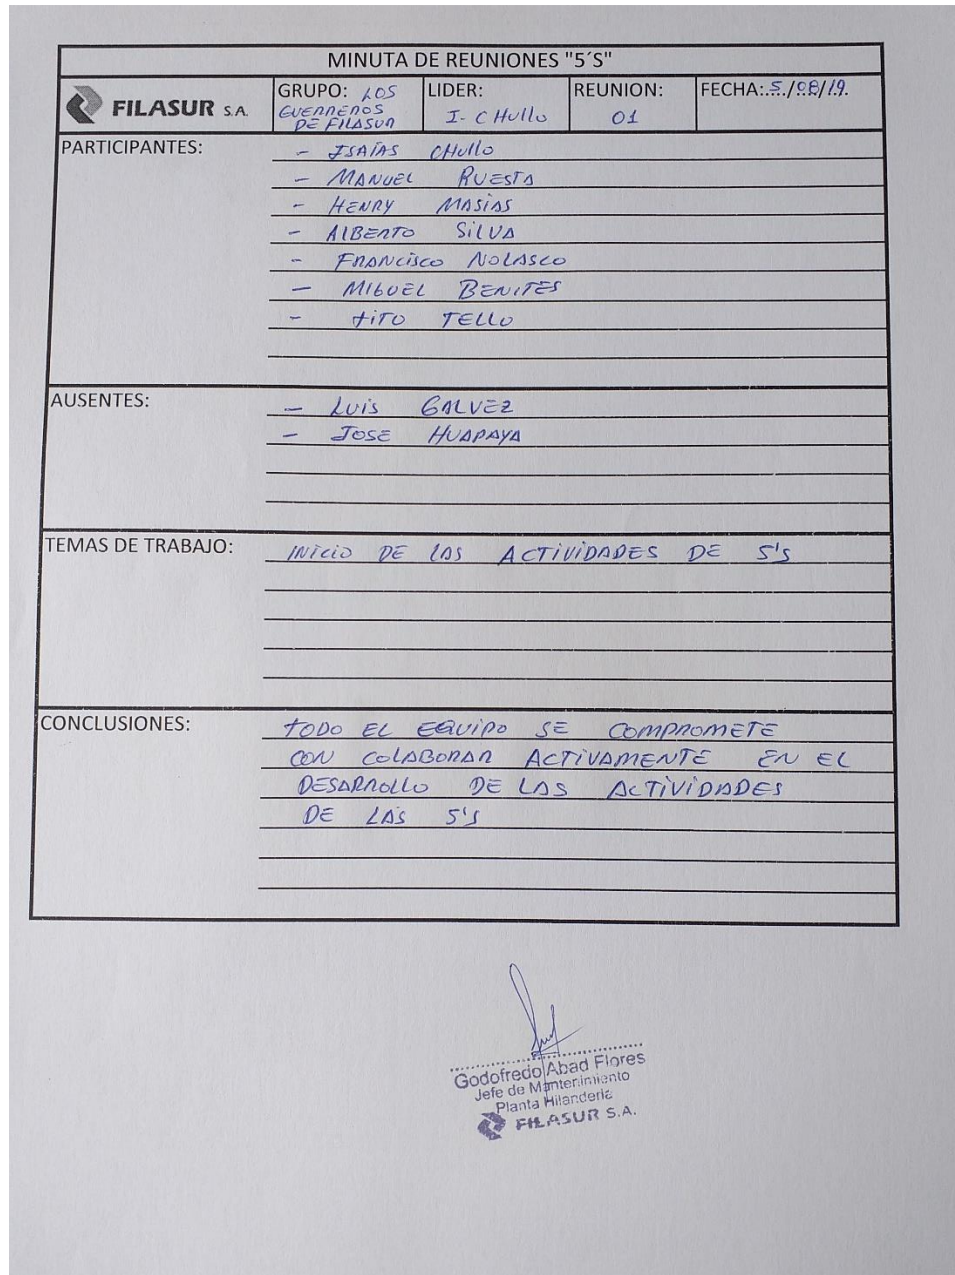 MINUTA DE REUNIONES "5´S"
FILASUR S.A.
GRUPO: LOS GUERREROS DE FILASUR
LIDER: I- CHULLO
REUNION: 01
FECHA:.5./.08/.19.
PARTICIPANTES:
- ISAÍAS CHULLO
- MANUEL RUESTA
- HENRY MASÍAS
- ALBERTO SILVA
- FRANCISCO NOLASCO
- MIGUEL BENITES
- TITO TELLO
AUSENTES:
- LUIS GALVEZ
- JOSE HUAPAYA
TEMAS DE TRABAJO:
INICIO DE LAS ACTIVIDADES DE 5'S
CONCLUSIONES:
TODO EL EQUIPO SE COMPROMETE
CON COLABORAR ACTIVAMENTE EN EL
DESARROLLO DE LAS ACTIVIDADES
DE LAS 5'S
Godofredo Abad Flores
Jefe de Mantenimiento
Planta Hilandería
FILASUR S.A.